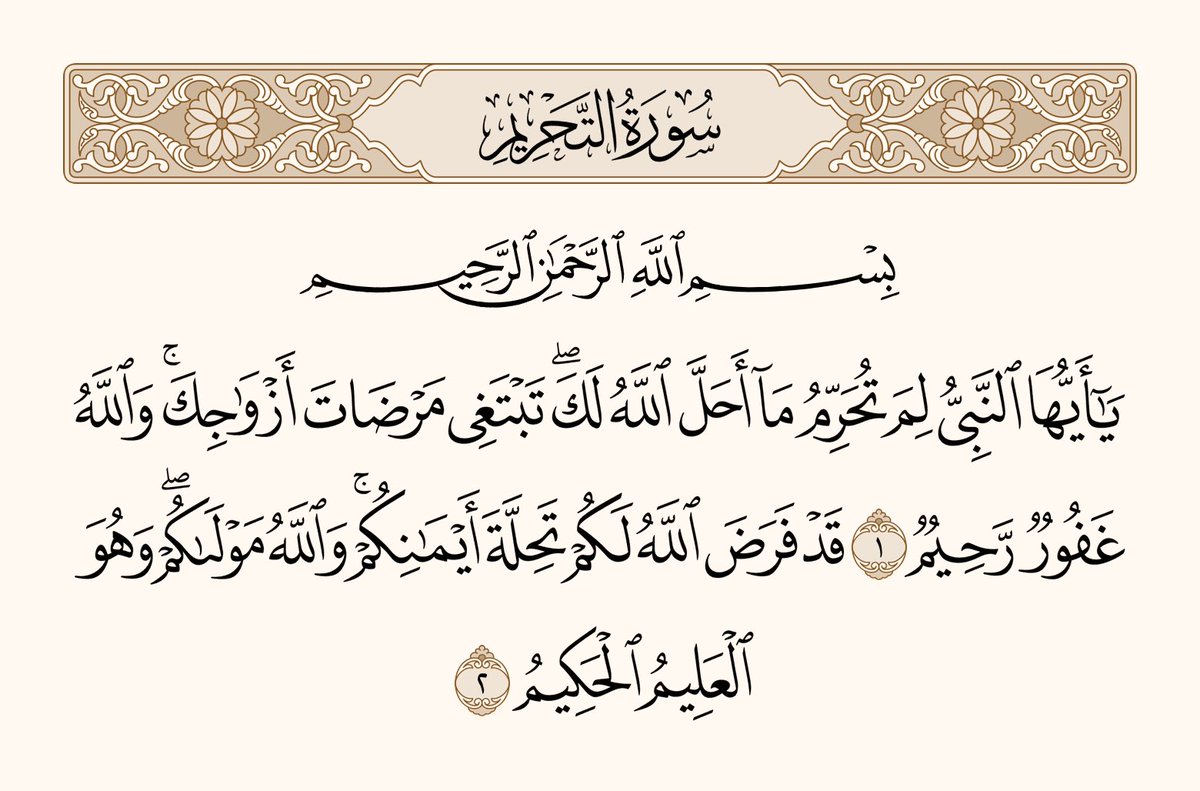 سُورَةُ التَّحْرِيمِ
بِسْمِ ٱللَّهِ ٱلرَّحْمَٰنِ ٱلرَّحِيمِ
يَٰٓأَيُّهَا ٱلنَّبِىُّ لِمَ تُحَرِّمُ مَآ أَحَلَّ ٱللَّهُ لَكَ ۖ تَبْتَغِى مَرْضَاتَ أَزْوَٰجِكَ ۚ وَٱللَّهُ
غَفُورٌ رَّحِيمٌ ١ قَدْ فَرَضَ ٱللَّهُ لَكُمْ تَحِلَّةَ أَيْمَٰنِكُمْ ۚ وَٱللَّهُ مَوْلَىٰكُمْ ۖ وَهُوَ
ٱلْعَلِيمُ ٱلْحَكِيمُ ٢